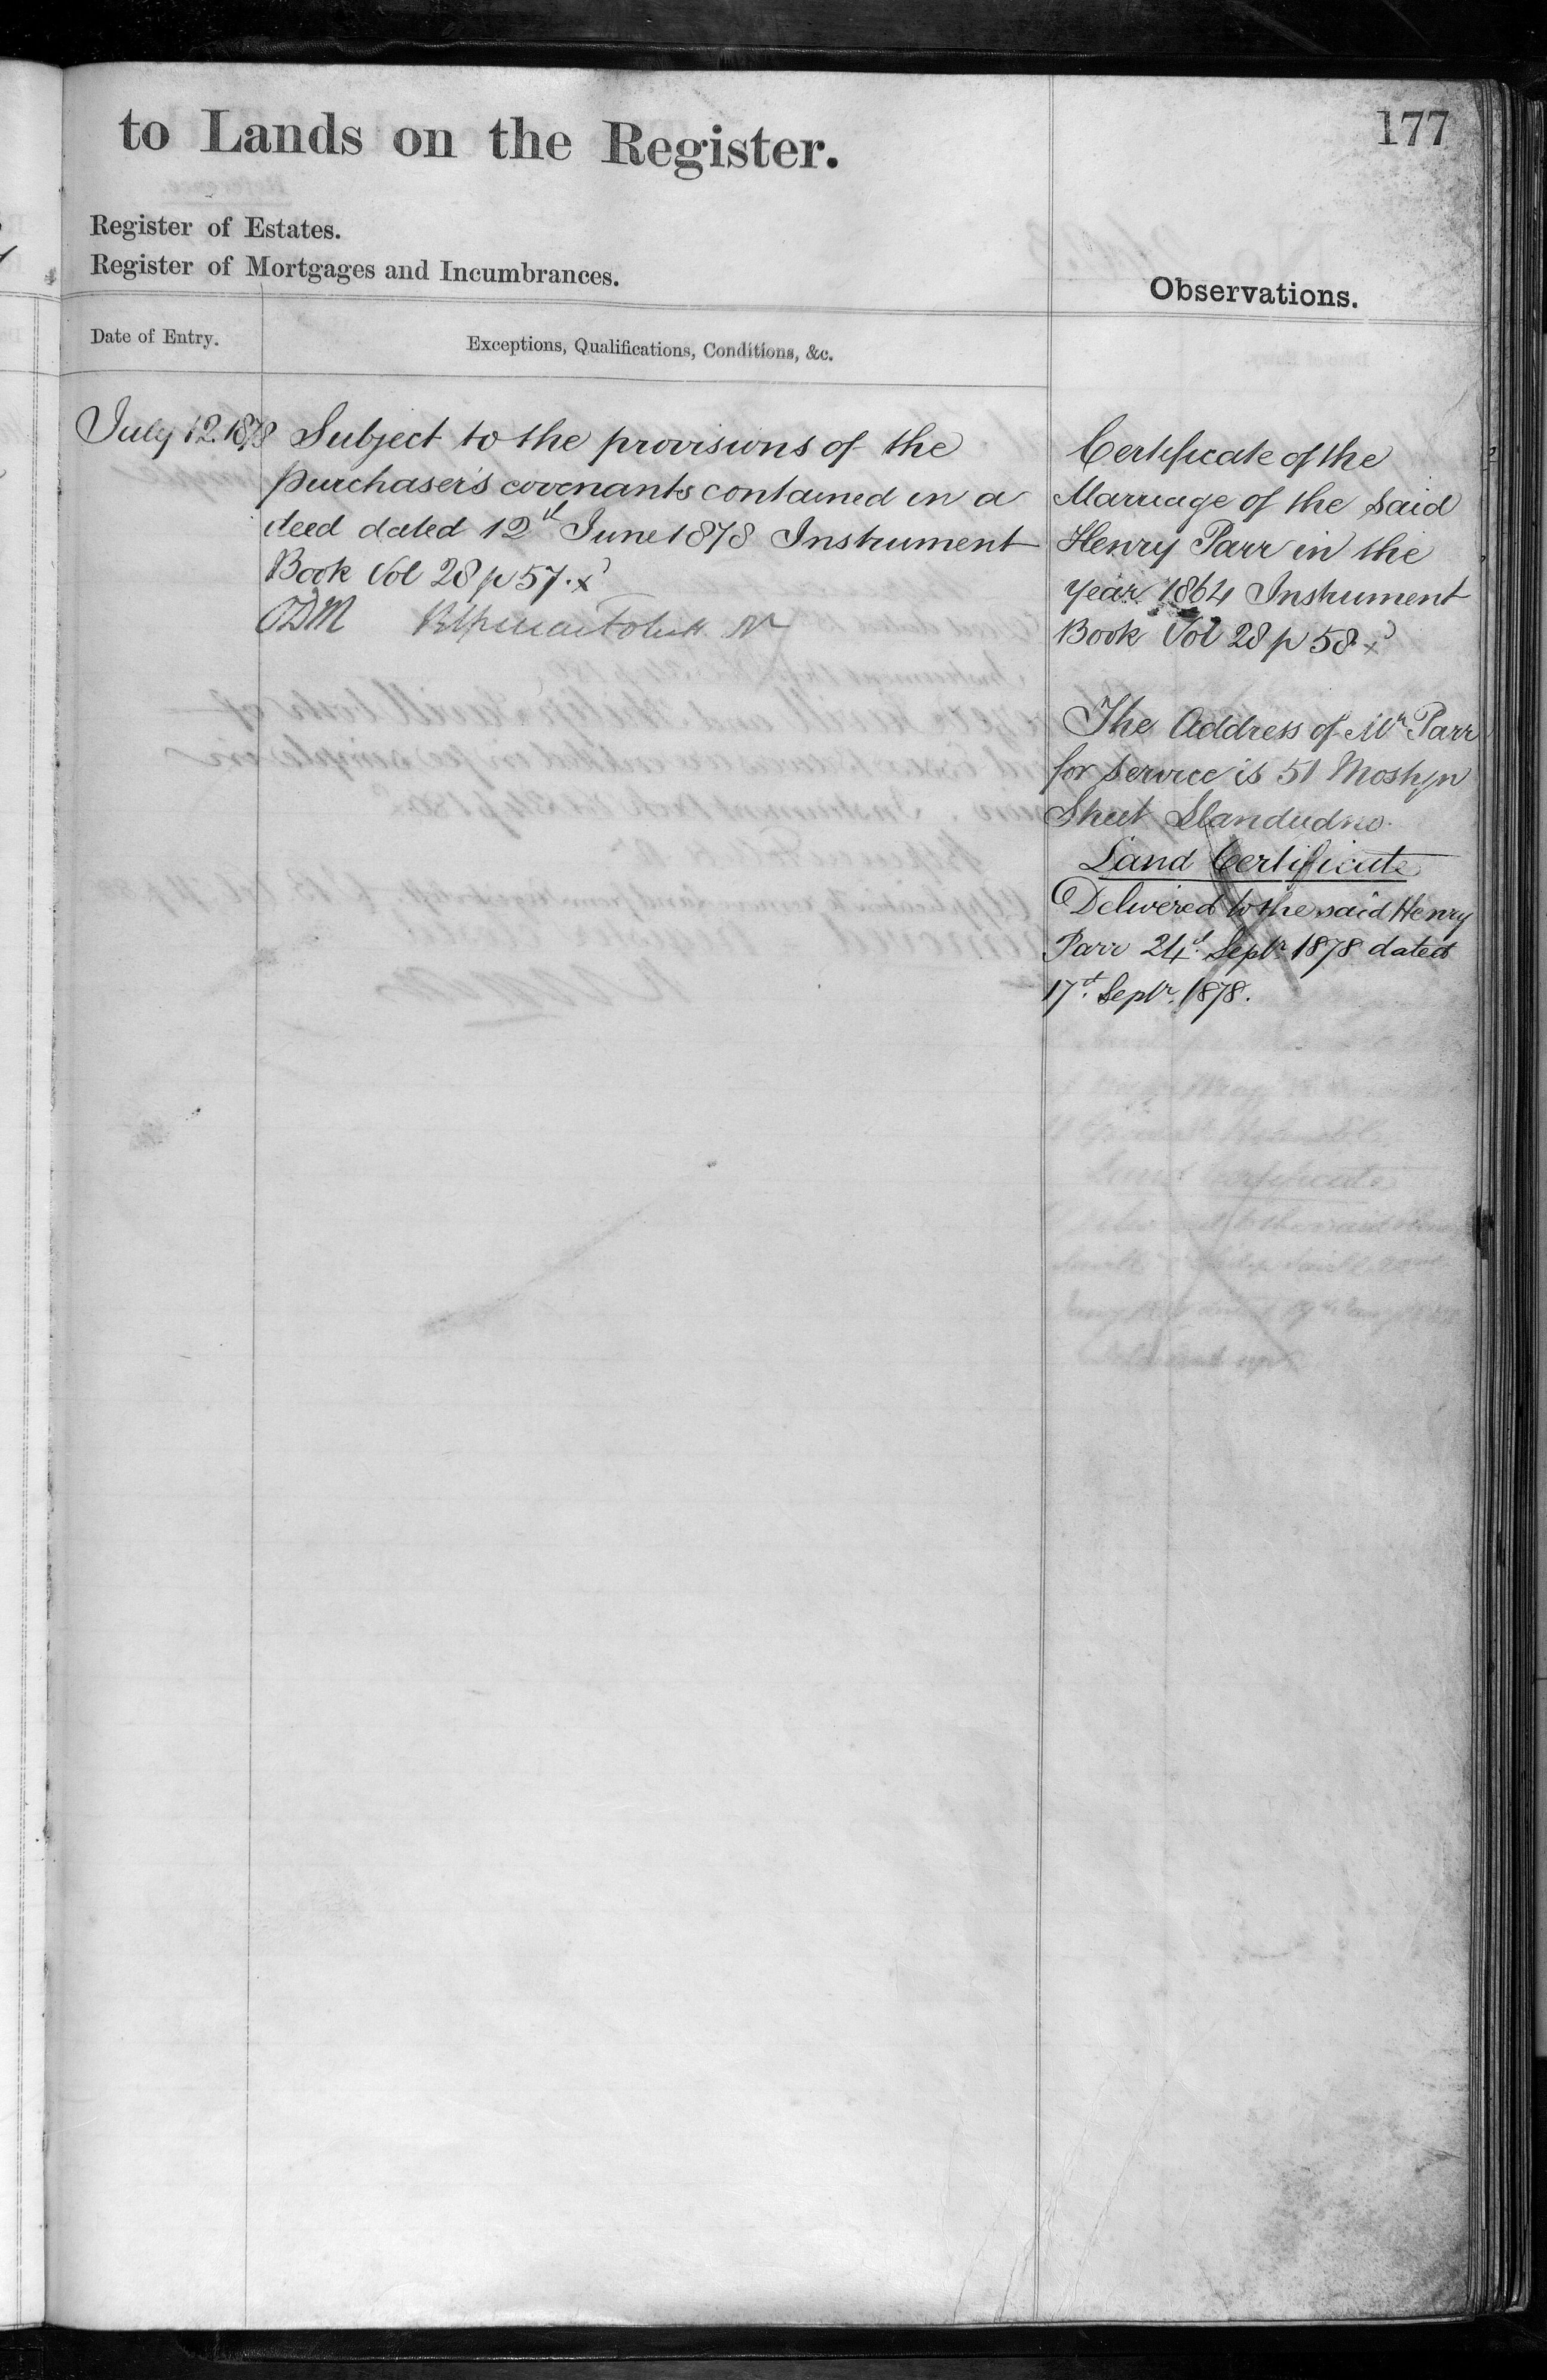 to Lands on the Register.
177
Register of Estates.
Register of Mortgages and Incumbrances.
Observations.
Date of Entry.
Exceptions, Qualifications, Conditions, &c.
July 12. 1878
Subject to the provisions of the
purchaser's covenants contained in a
deed dated 12th June 1878 Instrument
Book Vol 28 p 57. x
ODM
Certificate of the
Marriage of the said
Henry Parr in the
year 1864 Instrument
Book Vol 28 p 58 x
The Address of Mr Parr
for service is 51 Mostyn
Street Llandudno.
Land Certificate
Delivered to the said Henry
Parr 24th Septr 1878 dated
17th Septr 1878.